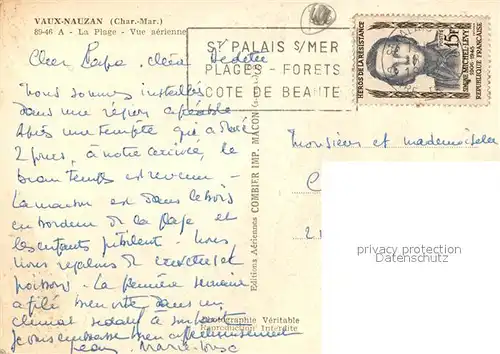 VAUX-NAUZAN (Char.-Mar.)
89-46 A - La Plage - Vue aérienne
ST PALAIS S/MER
PLAGES - FORETS
COTE DE BEAUTE
HÉROS DE LA RÉSISTANCE
15F
SIMONE MICHEL-LEVY
1906-1945
REPUBLIQUE FRANÇAISE
Cher Papa, chère
Nous sommes installés
dans une région agréable
Après une tempête qui a duré
2 jours, à notre arrivée, le
beau temps est revenu -
La maison est dans le bois
en bordure de la plage et
les enfants jubilent - Nous
nous régalons de crevettes et
poissons. La première semaine
a filé bien vite dans un
climat sédatif à souhait
Je vous embrasse bien affectueusement
Marie-Louise
Monsieur et mademoiselle
Editions Aériennes COMBIER IMP. MACON
Photographie Véritable
Reproduction Interdite
privacy protection
ansichtskarten-lexikon.de